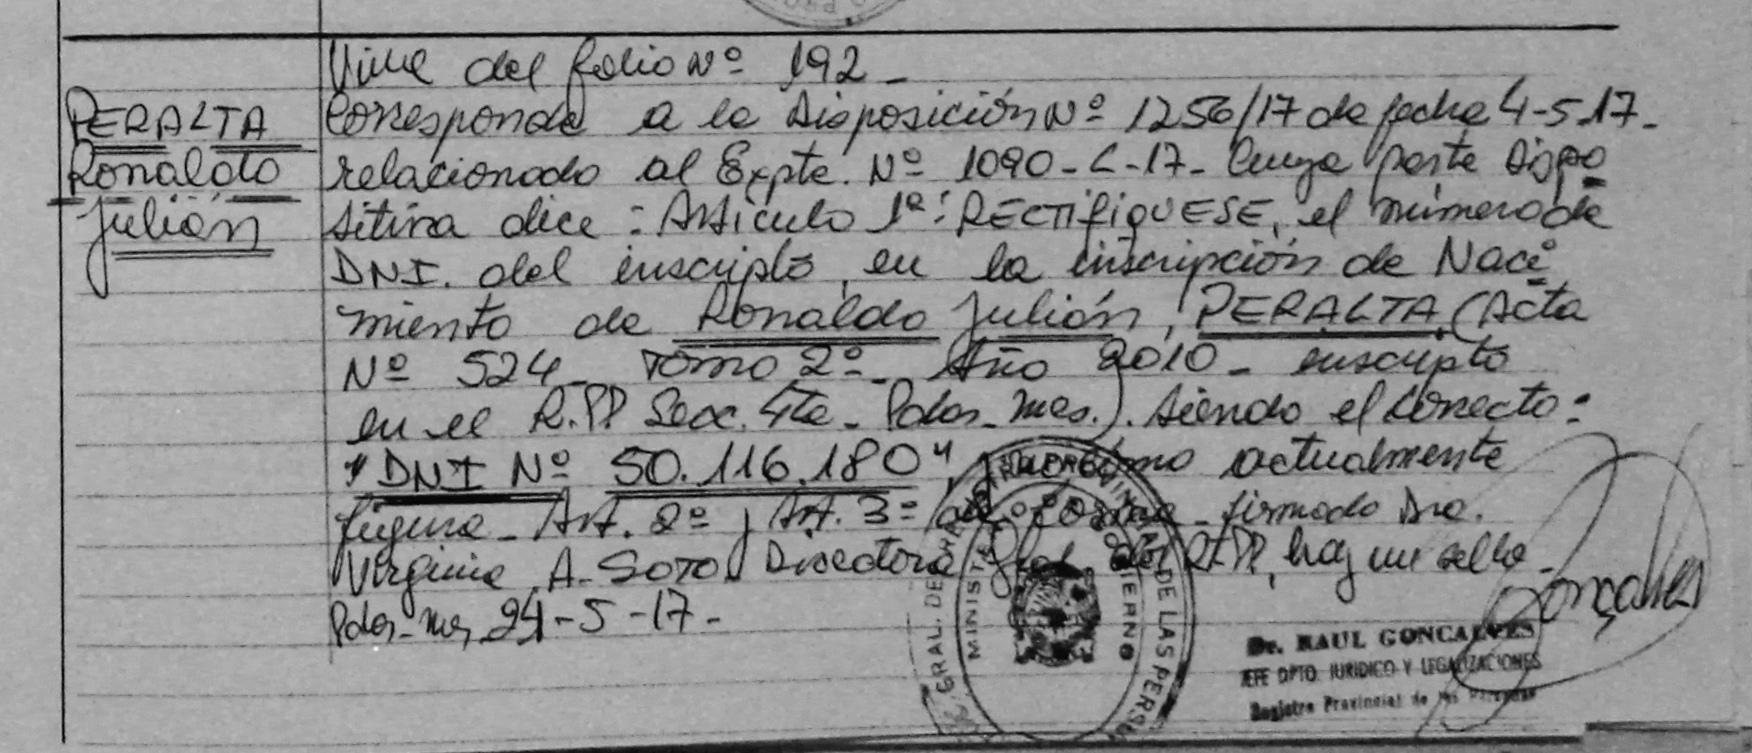 Viene del folio Nº 192 -
PERALTA
Ronaldo
Julián
Corresponde a la Disposición Nº 1256/17 de fecha 4-5-17-
relacionado al Expte. Nº 1090-L-17- Cuya parte dispo
sitiva dice: Artículo 1º: RECTIFIQUESE, el número de
DNI. del inscripto, en la inscripción de Naci
miento de Ronaldo Julián, PERALTA (Acta
Nº 524- Tomo 2º- Año 2010- inscripto
en el R.PP Secc. 4ta- Pdas-Mnes.). Siendo el correcto:
"DNI Nº 50.116.180", como actualmente
figura- Art. 2º, Art. 3º de forma- firmado Dra.
Virginia A. Soto Directora Gral del R.PP, hay un sello-
Pdas-Mnes, 24-5-17-
GRAL. DE
DE LAS PERS
MINIST
Gonçalves
Dr. RAUL GONCALVES
JEFE DPTO. JURIDICO Y LEGALIZACIONES
Registro Provincial de las Personas